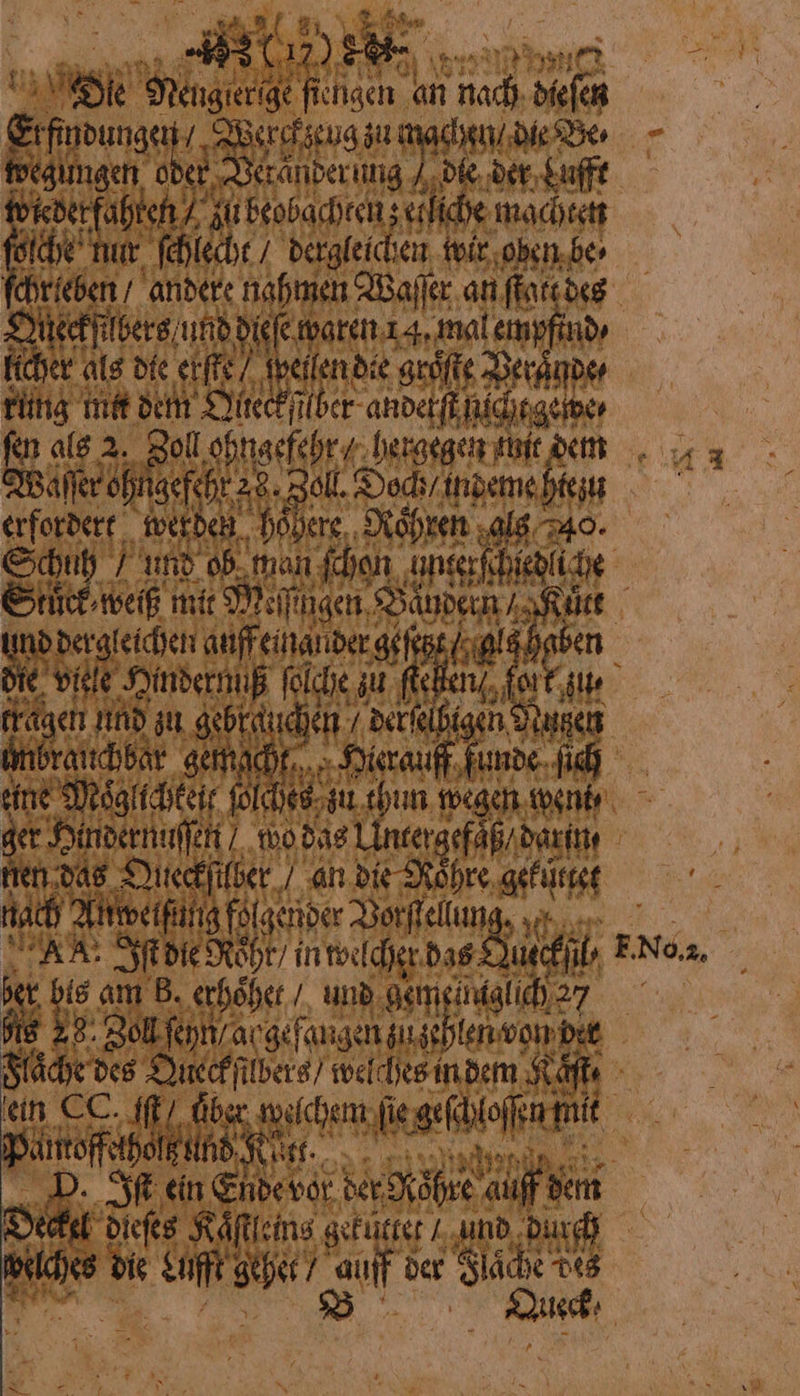 (17)
Die Neugierige fiengen an nach dieſen
Erfindungen / Werckzeug zu machen / die Be⸗
wegungen oder Veränderung / die der Lufft
wiederfahren / zu beobachten; etliche machten
ſolche nur ſchlecht / dergleichen wir oben be⸗
ſchrieben / andere nahmen Waſſer an ſtatt des
Queckſilbers / und dieſe waren 14. mal empfind⸗
licher als die erſte / weilen die gröſte Verände⸗
rung mit dem Queckſilber anderſt nicht gewe⸗
ſen als 2. Zoll ohngefehr / hergegen mit dem
Waſſer ohngefehr 28. Zoll. Doch / indeme hiezu
erfordert werden höhere Röhren als 40.
Schuh / und ob man ſchon unterſchiedliche
Stück⸗weiß mit Meſſingen Bändern / Kütt
und dergleichen auff einander geſetzt / als haben
die viele Hindernuß ſolche zu ſtellen / fort zu⸗
tragen und zu gebrauchen / derſelbigen Nutzen
unbrauchbar gemacht. Hierauff funde ſich
eine Möglichkeit ſolches zu thun wegen weni⸗
ger Hindernuſſen / wo das Untergefäß / darin⸗
nen das Queckſilber / an die Röhre geküttet
nach Anweiſung folgender Vorſtellung.
AA. Iſt die Röhr / in welcher das Queckſil⸗ F.No.2.
ber bis am B. erhöhet / und gemeiniglich 27
bis 28. Zoll ſeyn / angefangen zu zehlen von der
Fläche des Queckſilbers / welches in dem Käſt⸗
lein CC. iſt / über welchem ſie geſchloſſen mit
Pantoffelholtz und Kütt.
D. Iſt ein Ende vor der Röhre auff dem
Deckel dieſes Käſtleins geküttet / und durch
welches die Lufft gehet / auff der Fläche des
B Queck⸗